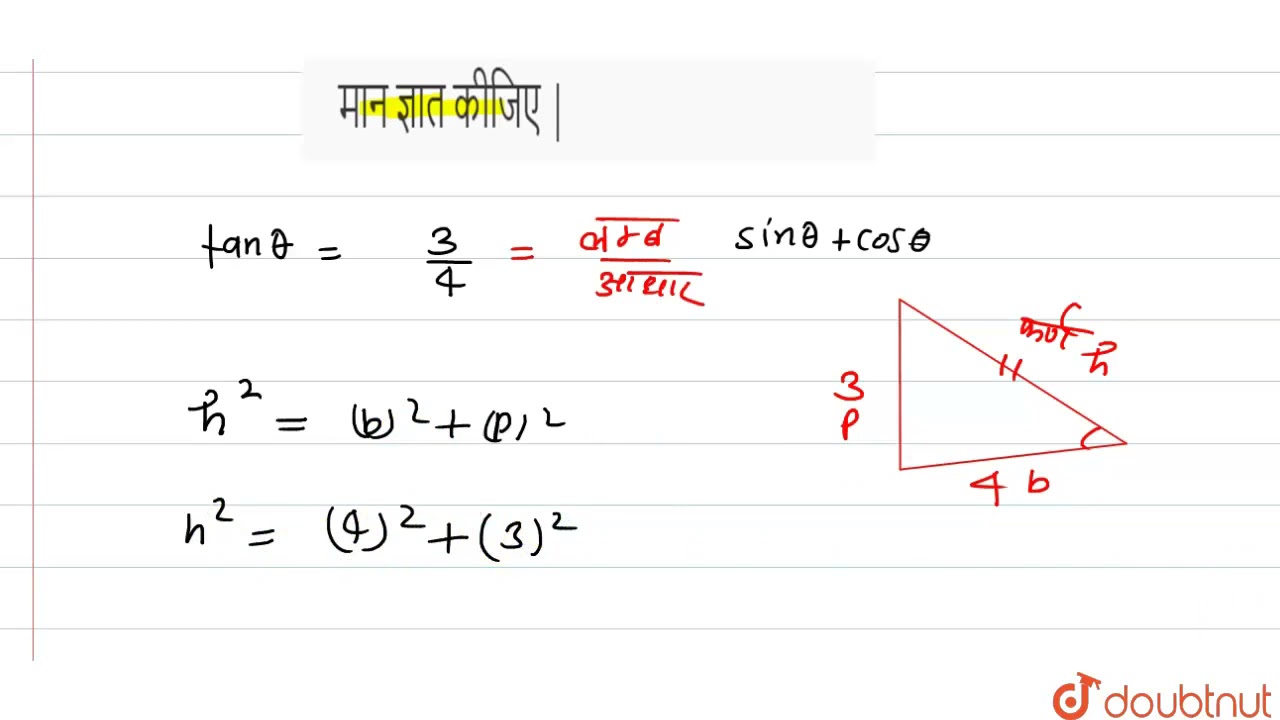 मान ज्ञात कीजिए |
tanθ = 3/4 = लम्ब/आधार sinθ + cosθ
कर्ण h
3
p
h² = (b)² + (p)²
4 b
h² = (4)² + (3)²
doubtnut